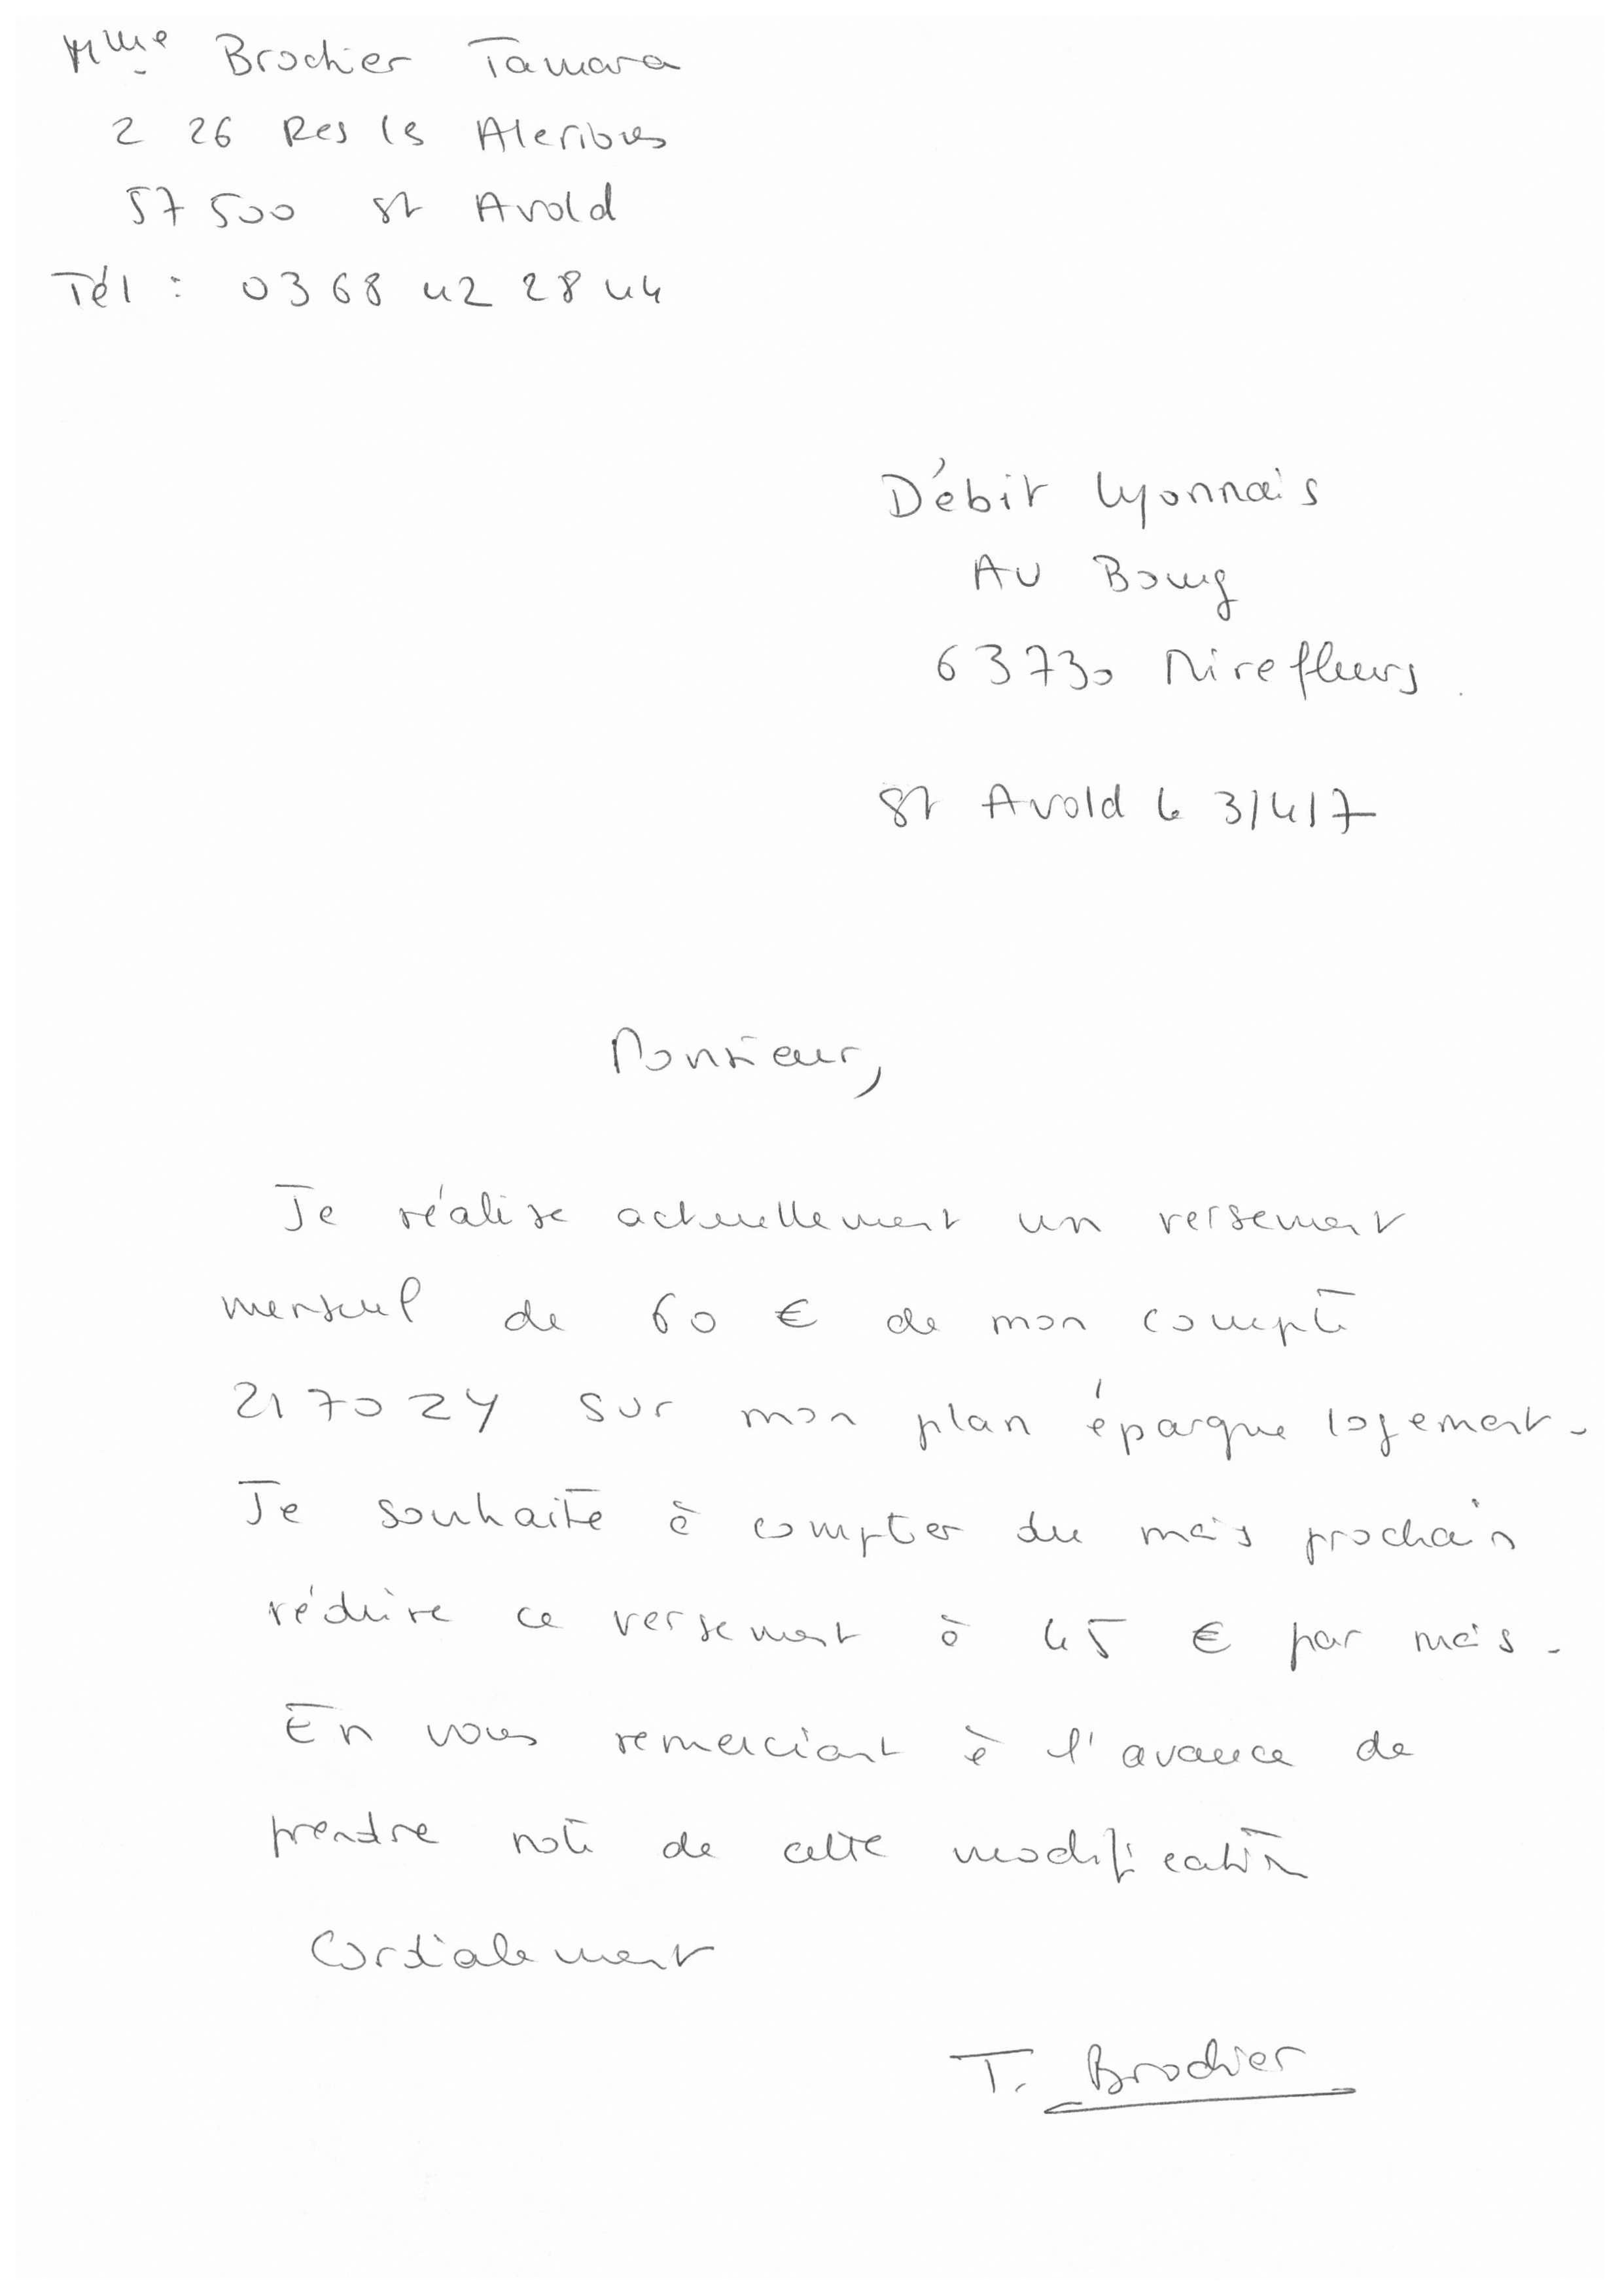 Mme Brochier Tamara
2 26 Res ls Aleribes
57 500 St Avold
Tél : 03 68 42 28 44
Débit Lyonnais
Au Bourg
63730 Mirefleurs
St Avold le 3/4/7
Monsieur,
Je réalise actuellement un versement
mensuel de 60 € de mon compte
217024 sur mon plan épargne logement.
Je souhaite à compter du mois prochain
réduire ce versement à 45 € par mois.
En vous remerciant à l'avance de
prendre note de cette modification
Cordialement
T. Brochier